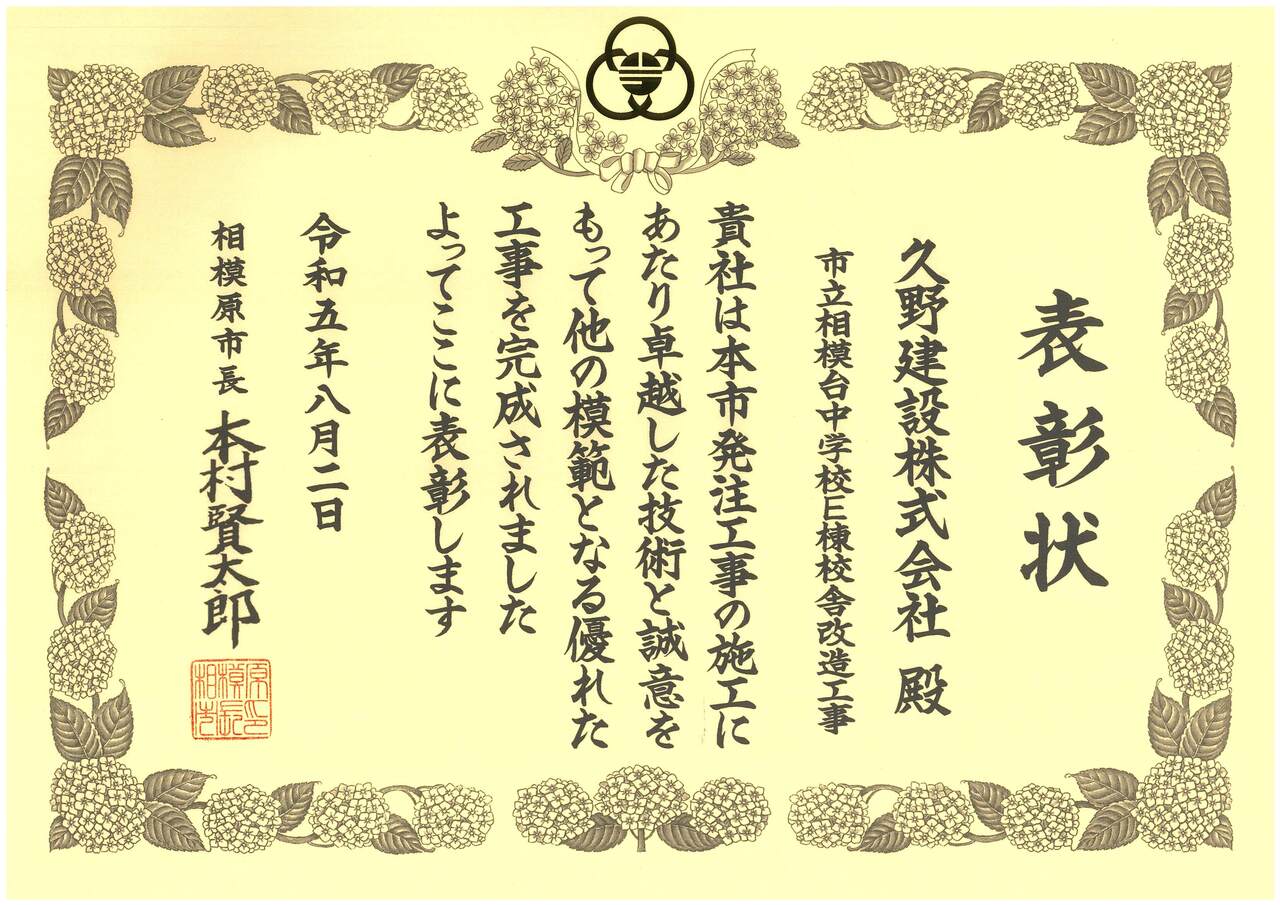 表彰状
久野建設株式会社 殿
市立相模台中学校E棟校舎改造工事
貴社は本市発注工事の施工に
あたり卓越した技術と誠意を
もって他の模範となる優れた
工事を完成されました
よってここに表彰します
令和五年八月二日
相模原市長 本村賢太郎
相模原市長印